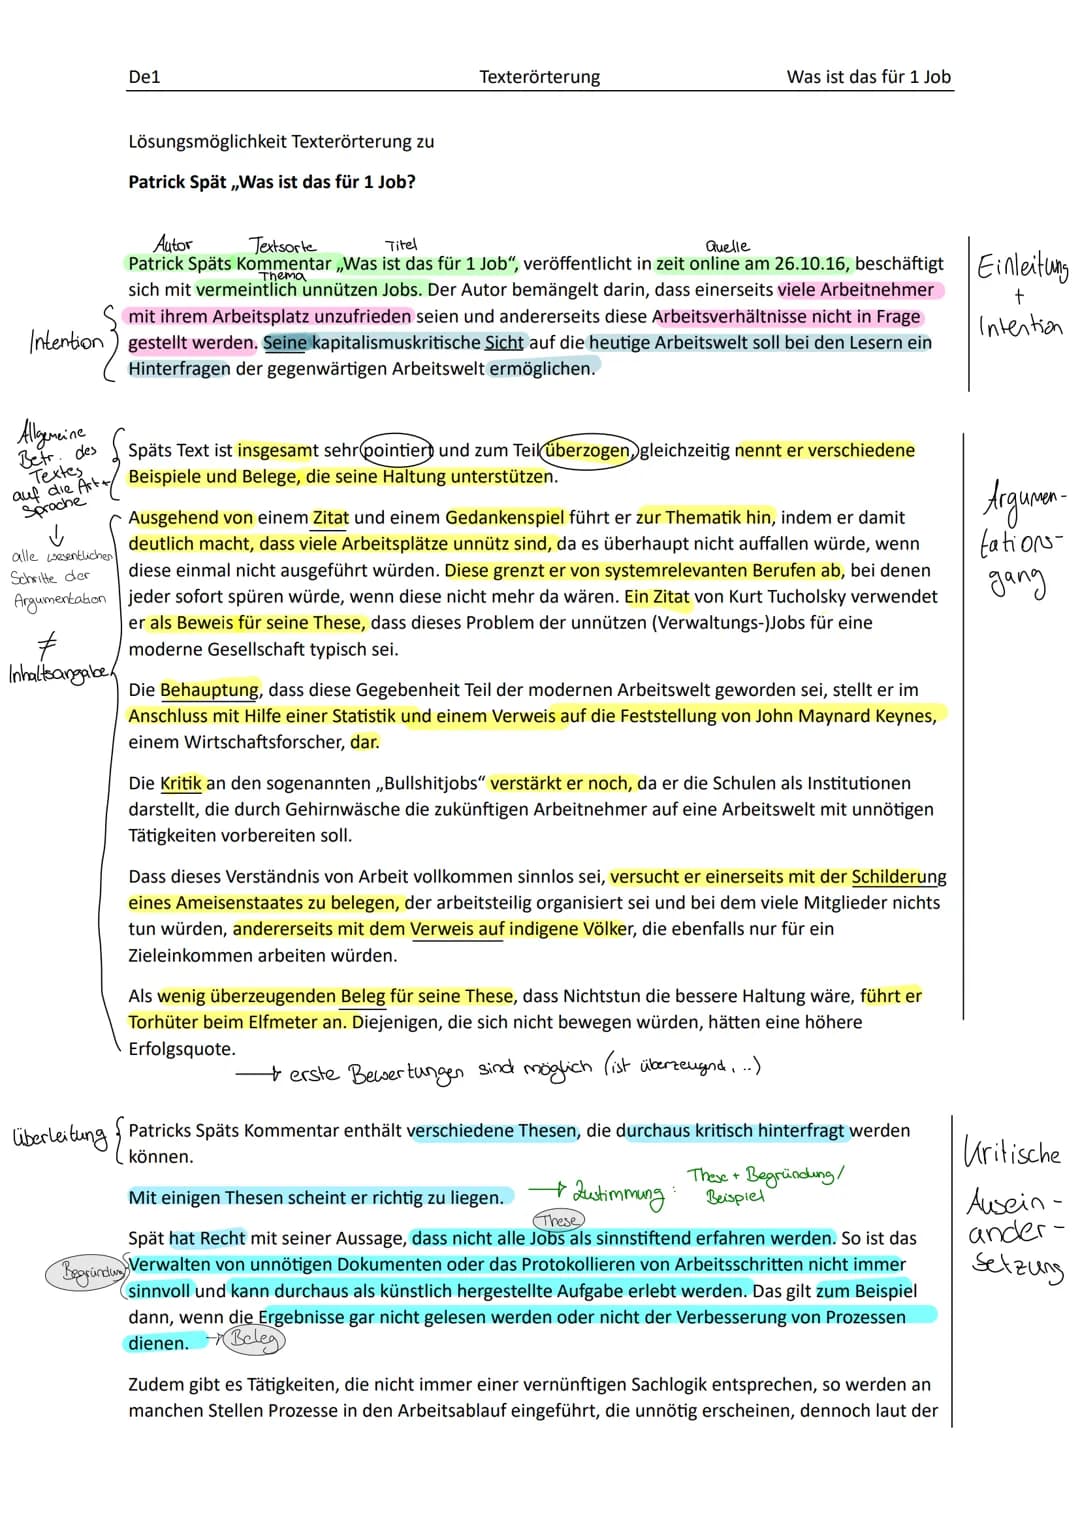 De1 Texterörterung Was ist das für 1 Job
Lösungsmöglichkeit Texterörterung zu
Patrick Spät „Was ist das für 1 Job?
Autor Textsorte Titel Quelle
Patrick Späts Kommentar „Was ist das für 1 Job“, veröffentlicht in zeit online am 26.10.16, beschäftigt
Thema
sich mit vermeintlich unnützen Jobs. Der Autor bemängelt darin, dass einerseits viele Arbeitnehmer
mit ihrem Arbeitsplatz unzufrieden seien und andererseits diese Arbeitsverhältnisse nicht in Frage
gestellt werden. Seine kapitalismuskritische Sicht auf die heutige Arbeitswelt soll bei den Lesern ein
Hinterfragen der gegenwärtigen Arbeitswelt ermöglichen.
Intention
Einleitung
+
Intention
Allgemeine
Betr. des
Textes
auf die Art +
Sprache
↓
alle wesentlichen
Schritte der
Argumentation
≠
Inhaltsangabe
Späts Text ist insgesamt sehr pointiert und zum Teil überzogen, gleichzeitig nennt er verschiedene
Beispiele und Belege, die seine Haltung unterstützen.
Ausgehend von einem Zitat und einem Gedankenspiel führt er zur Thematik hin, indem er damit
deutlich macht, dass viele Arbeitsplätze unnütz sind, da es überhaupt nicht auffallen würde, wenn
diese einmal nicht ausgeführt würden. Diese grenzt er von systemrelevanten Berufen ab, bei denen
jeder sofort spüren würde, wenn diese nicht mehr da wären. Ein Zitat von Kurt Tucholsky verwendet
er als Beweis für seine These, dass dieses Problem der unnützen (Verwaltungs-)Jobs für eine
moderne Gesellschaft typisch sei.
Die Behauptung, dass diese Gegebenheit Teil der modernen Arbeitswelt geworden sei, stellt er im
Anschluss mit Hilfe einer Statistik und einem Verweis auf die Feststellung von John Maynard Keynes,
einem Wirtschaftsforscher, dar.
Die Kritik an den sogenannten „Bullshitjobs“ verstärkt er noch, da er die Schulen als Institutionen
darstellt, die durch Gehirnwäsche die zukünftigen Arbeitnehmer auf eine Arbeitswelt mit unnötigen
Tätigkeiten vorbereiten soll.
Dass dieses Verständnis von Arbeit vollkommen sinnlos sei, versucht er einerseits mit der Schilderung
eines Ameisenstaates zu belegen, der arbeitsteilig organisiert sei und bei dem viele Mitglieder nichts
tun würden, andererseits mit dem Verweis auf indigene Völker, die ebenfalls nur für ein
Zieleinkommen arbeiten würden.
Als wenig überzeugenden Beleg für seine These, dass Nichtstun die bessere Haltung wäre, führt er
Torhüter beim Elfmeter an. Diejenigen, die sich nicht bewegen würden, hätten eine höhere
Erfolgsquote.
→ erste Bewertungen sind möglich (ist überzeugnd, ..)
Argumen-
tations-
gang
Überleitung
Patricks Späts Kommentar enthält verschiedene Thesen, die durchaus kritisch hinterfragt werden
können.
Mit einigen Thesen scheint er richtig zu liegen. → Zustimmung: These + Begründung/
Beispiel
These
Spät hat Recht mit seiner Aussage, dass nicht alle Jobs als sinnstiftend erfahren werden. So ist das
Begründung
Verwalten von unnötigen Dokumenten oder das Protokollieren von Arbeitsschritten nicht immer
sinnvoll und kann durchaus als künstlich hergestellte Aufgabe erlebt werden. Das gilt zum Beispiel
dann, wenn die Ergebnisse gar nicht gelesen werden oder nicht der Verbesserung von Prozessen
dienen. → Beleg
Zudem gibt es Tätigkeiten, die nicht immer einer vernünftigen Sachlogik entsprechen, so werden an
manchen Stellen Prozesse in den Arbeitsablauf eingeführt, die unnötig erscheinen, dennoch laut der
Kritische
Ausein-
ander-
setzung